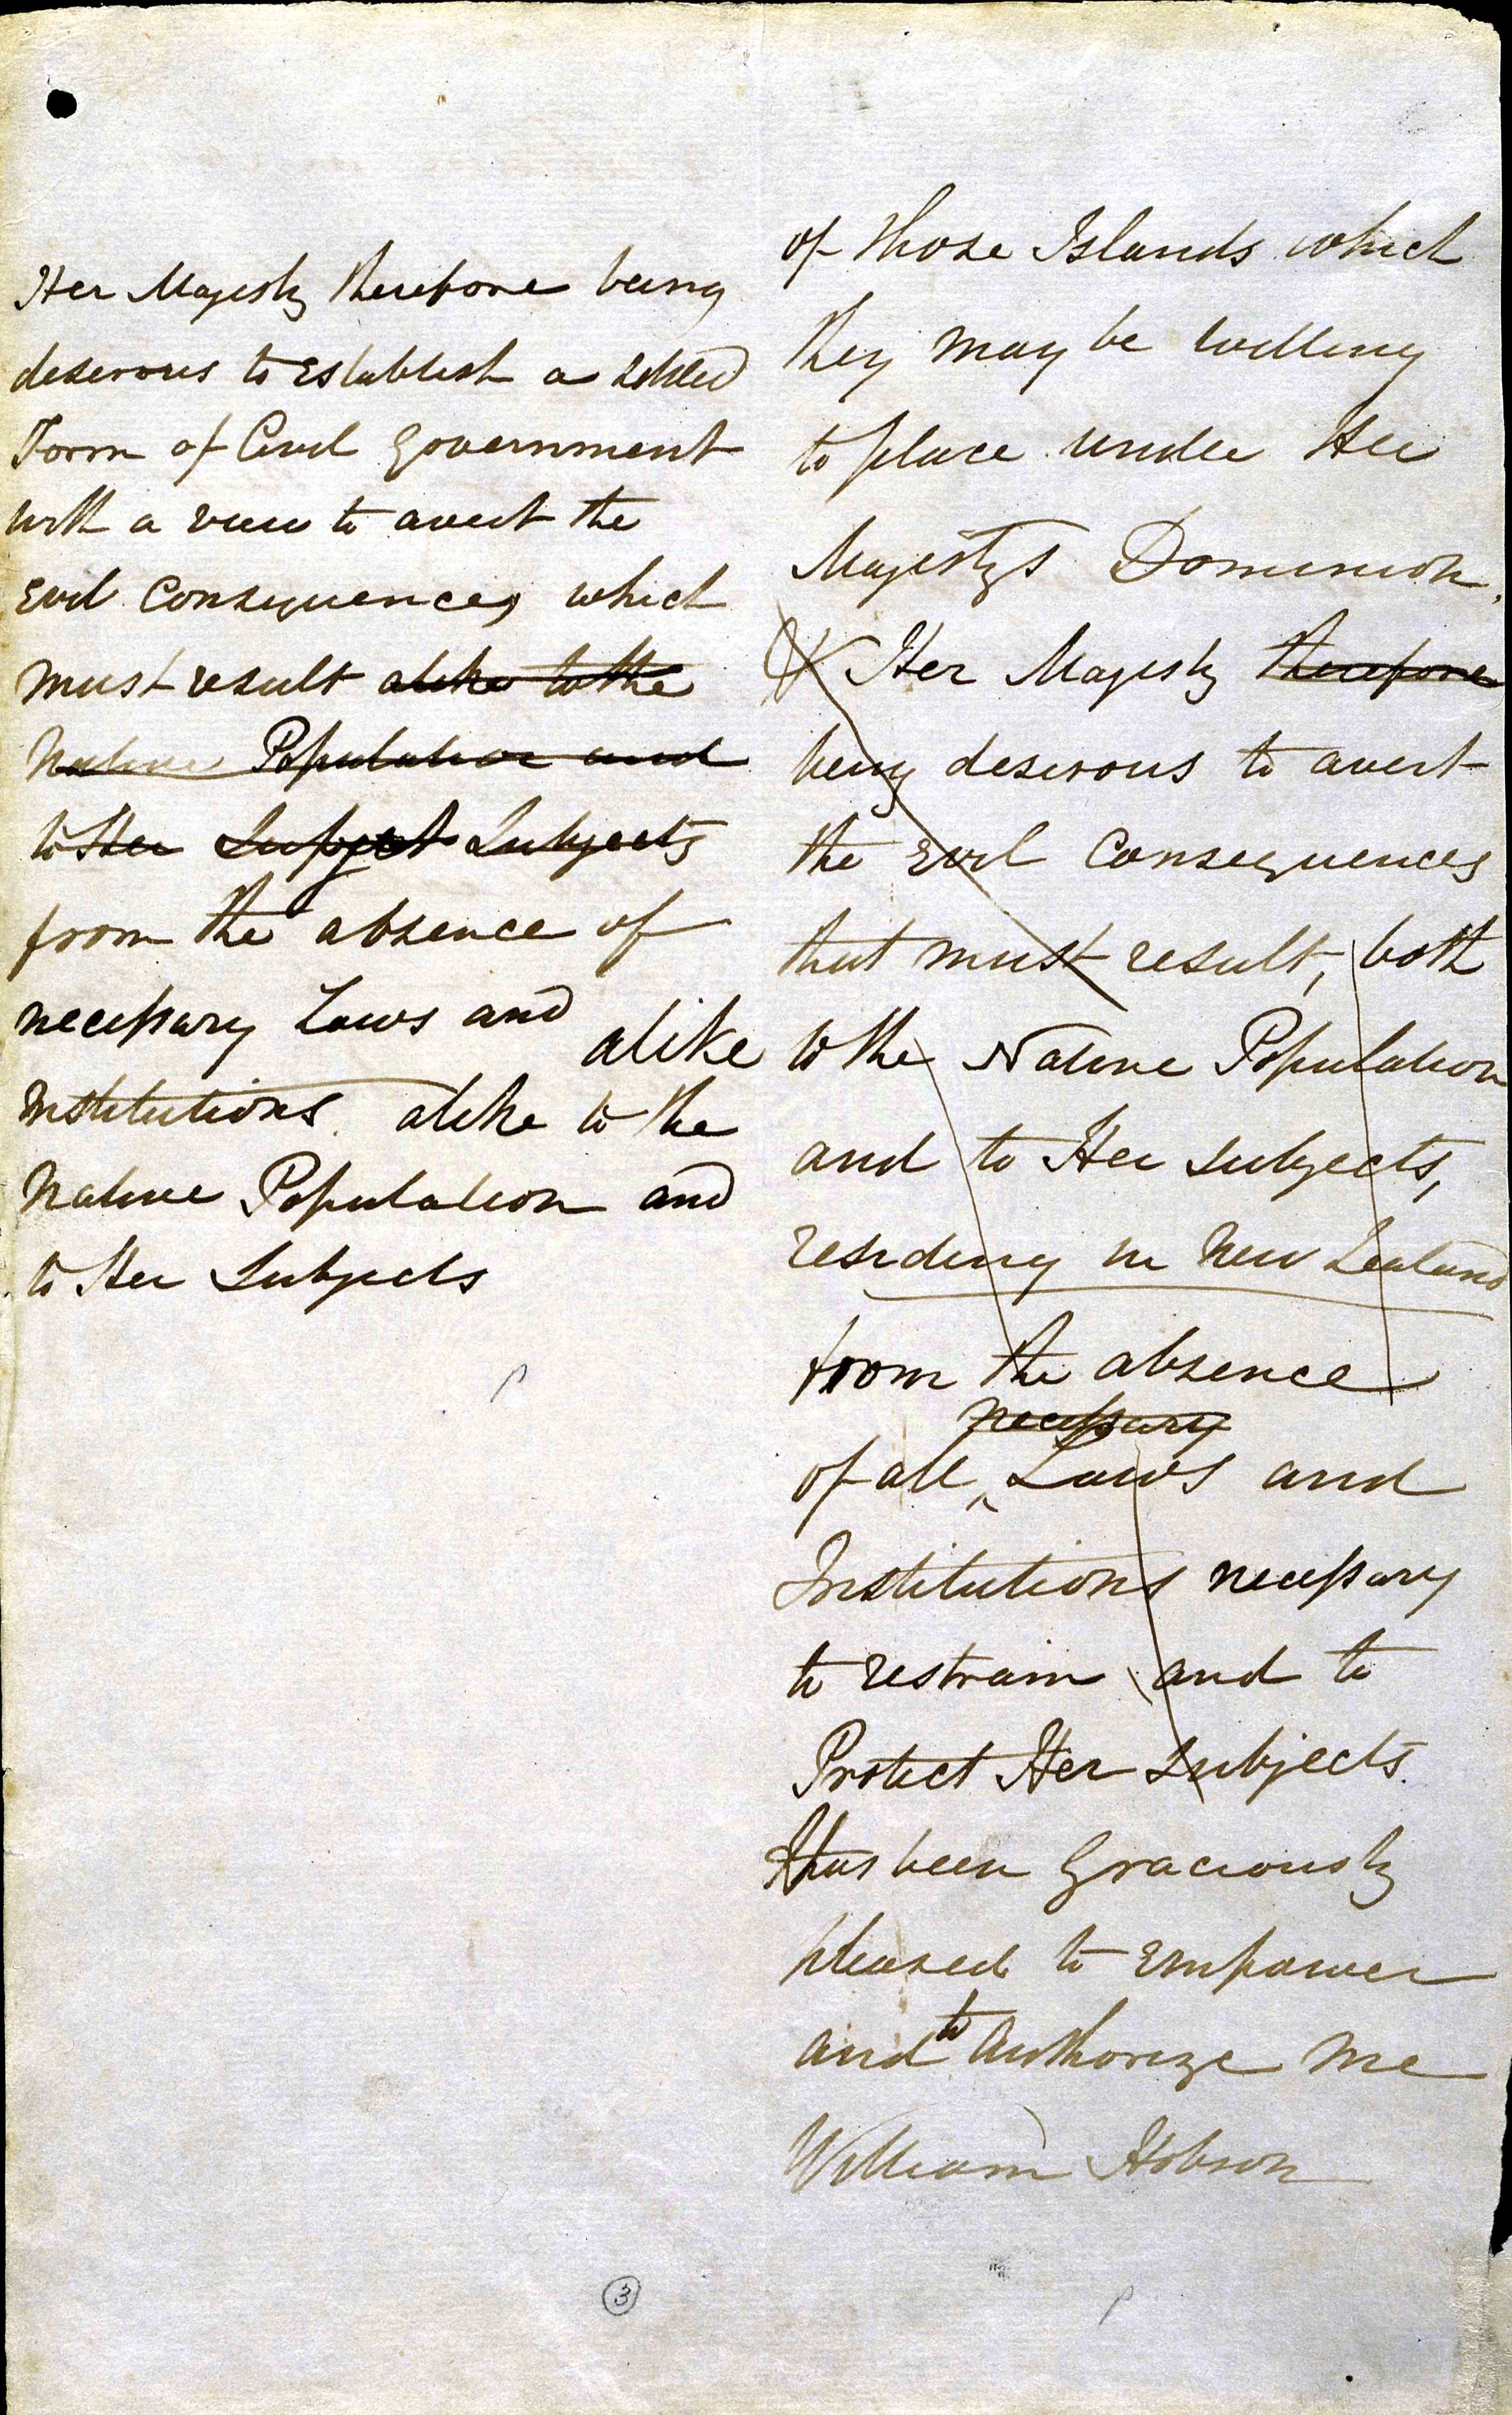 Her Majesty therefore being
desirous to Establish a settled
Form of Civil Government
with a view to avert the
Evil Consequences which
must result alike to the
Native Population and
to Her Subject Subjects
from the absence of
necessary Laws and
alike
Institutions alike to the
Native Population and
to Her Subjects
of those Islands which
they may be willing
to place under Her
Majestys Dominion.
Her Majesty therefore
being desirous to avert
the Evil Consequences
that must result, both
to the Native Population
and to Her Subjects,
residing in New Zealand
from the absence
necessary
of all ‸ Laws and
Institutions necessary
to restrain and to
Protect Her Subjects.
Has been Graciously
pleased to Empower
to
and Authorize me
William Hobson
3